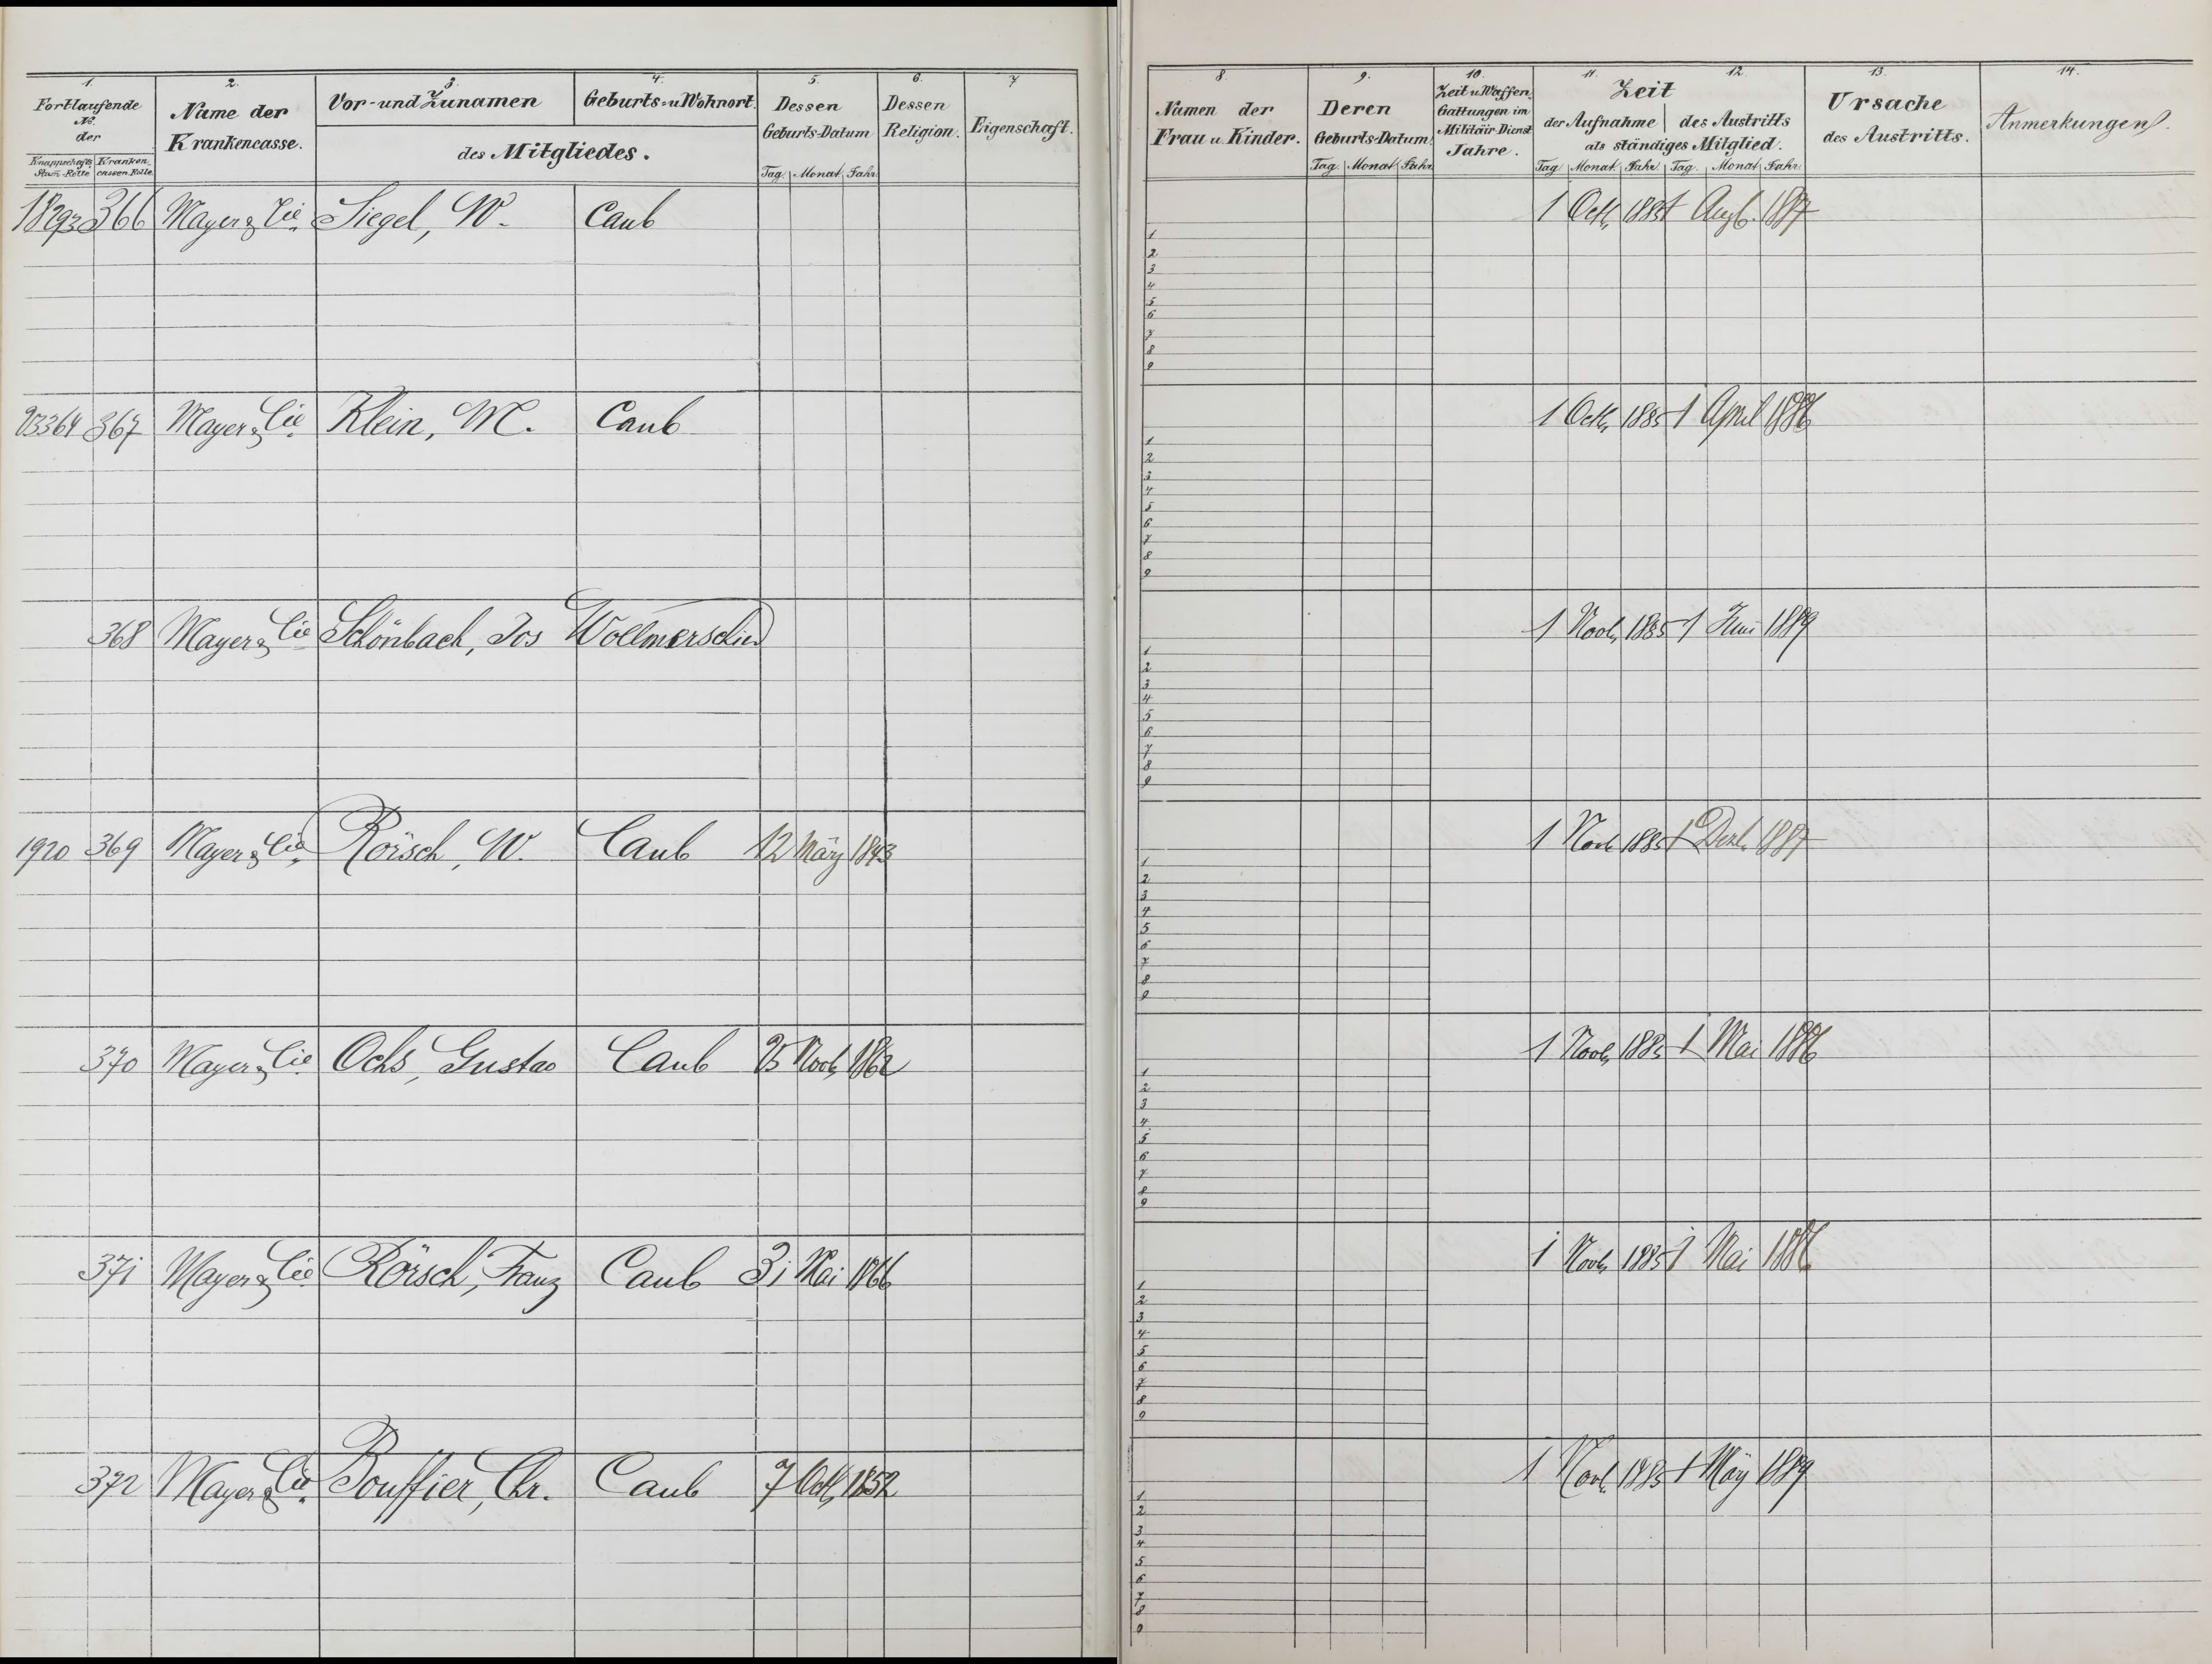 1. 2. 3. 4. 5. 6. 7
Fortlaufende No. der
Knappschafts Stam-Rolle
Kranken cassen Rolle
Name der Krankencasse.
Vor- und Zunamen
Geburts- u Wohnort
des Mitgliedes.
Dessen Geburts-Datum
Tag. Monat. Jahr.
Dessen Religion.
Eigenschaft.
366 Mayer & Cie. Siegel, W. Caub
367 Mayer & Cie. Klein, M. Caub
368 Mayer & Cie Schönbach, Jos Wollmerschied
1920 369 Mayer & Cie. Rörsch, W. Caub 12 März 1843
370 Mayer & Cie. Ochs, Gustav Caub 25 Novb, 1862
371 Mayer & Cie. Rörsch, Franz Caub 31 Mai 1866
372 Mayer & Cie. Bouffier, Chr. Caub 7 Octb, 1852
8. 9. 10. 11. 12. 13. 14.
Namen der Frau u. Kinder.
Deren Geburts-Datum
Tag. Monat. Jahr
Zeit u Waffen Gattungen im Militäir Dienst Jahre.
Zeit
der Aufnahme des Austritts
als ständiges Mitglied.
Tag. Monat. Jahr. Tag. Monat. Jahr.
Ursache des Austritts.
Anmerkungen.
1 Octb, 1885 1 Augb. 1887
1
2
3
4
5
6
7
8
9
1 Octb, 1885 1 April 1886
1
2
3
4
5
6
7
8
9
1 Novb, 1885 1 Juni 1889
1
2
3
4
5
6
7
8
9
1 Novb 1885 1 Dezb. 1887
1
2
3
4
5
6
7
8
9
1 Novb, 1885 1 Mai 1886
1
2
3
4
5
6
7
8
9
1 Novb, 1885 1 Mai 1886
1
2
3
4
5
6
7
8
9
1 Novb. 1885 1 März 1889
1
2
3
4
5
6
7
8
9